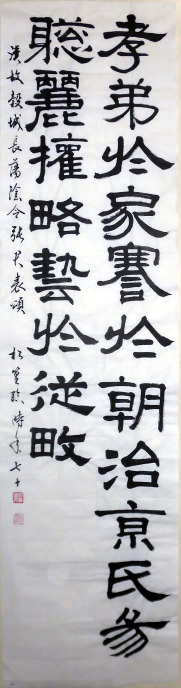 孝弟於家謇於朝治京氏易
聰麗權略藝於從畋
漢故穀城長蕩陰令張君表頌 臨 時年七十